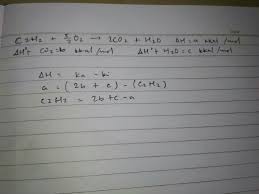 C2H2 + 5/2 O2 → 2CO2 + H2O ΔH = a kkal/mol
ΔH°f CO2 = b kkal/mol ΔH°f H2O = c kkal/mol
ΔH = ka - ki
a = (2b + c) - (C2H2)
C2H2 = 2b + c - a